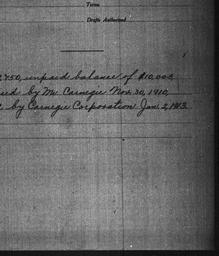 Terms
Drafts Authorized
,750, unpaid balance of $10,000,
ed by Mr. Carnegie Nov. 30, 1910,
by Carnegie Corporation Jan. 2, 1913.